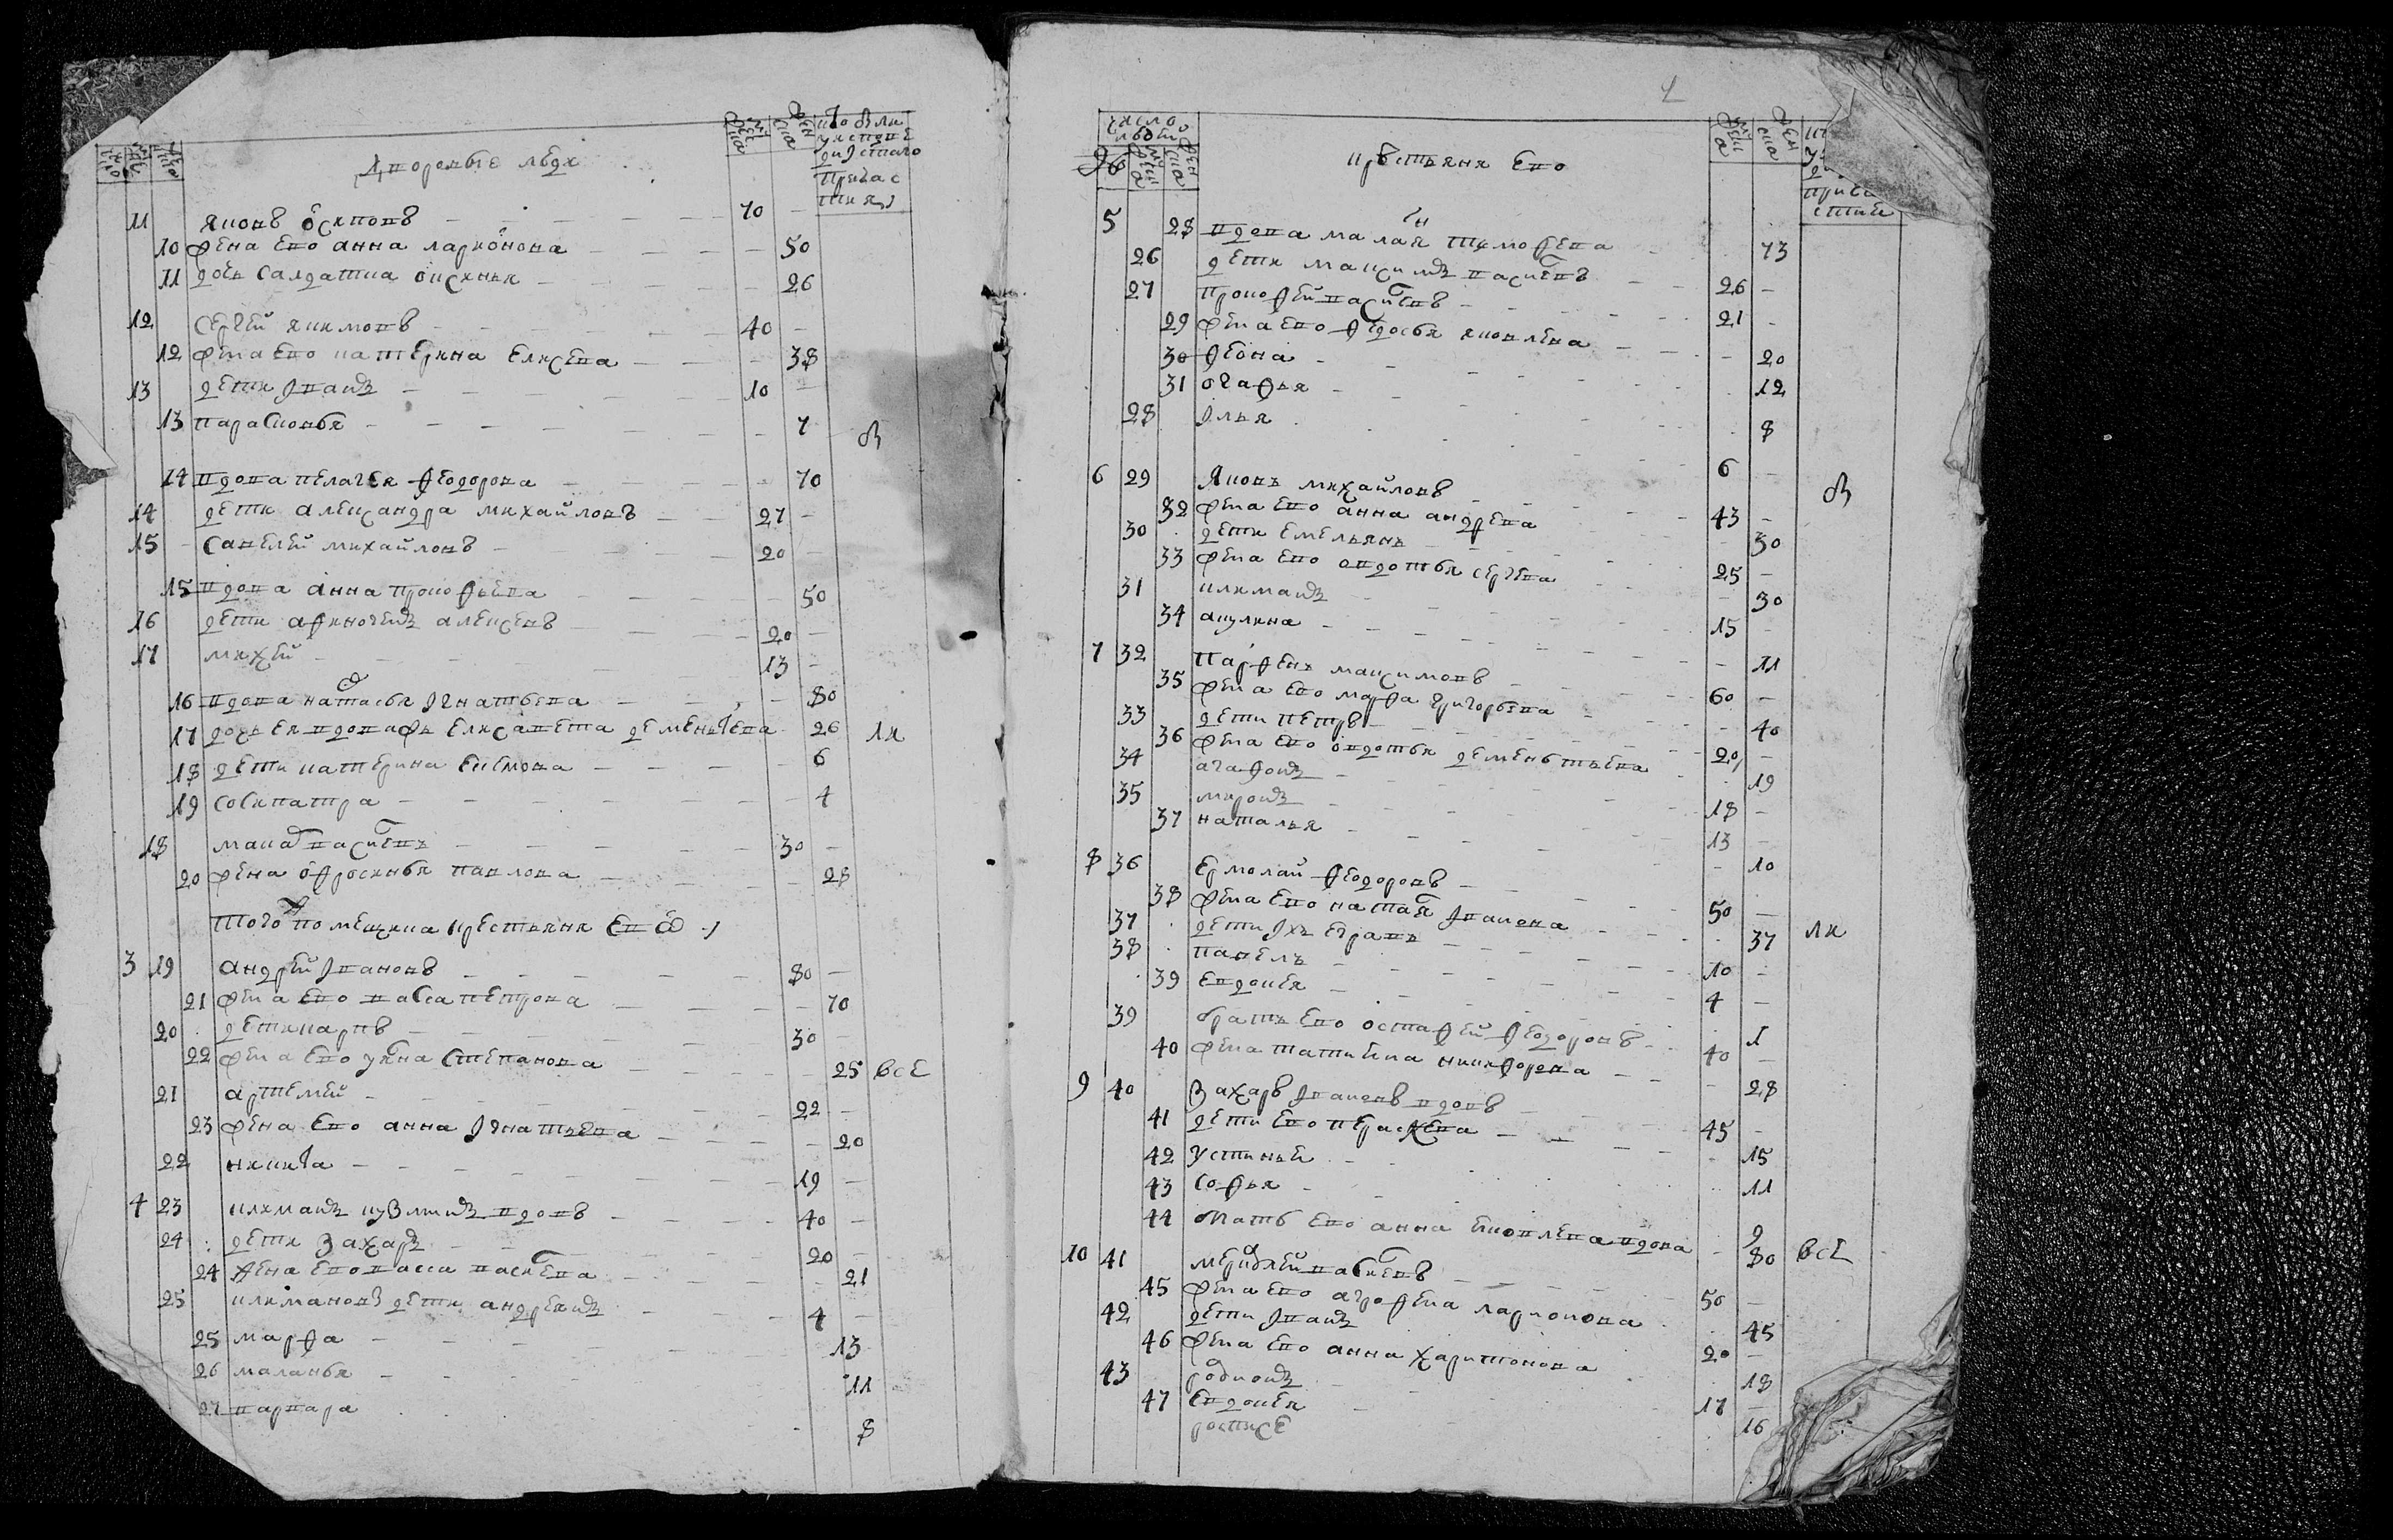 Дворовые люди
11 Яковъ Осиповъ 70
10 жена ево анна ларионова 50
11 дочь салдатка оксинья 26
12 Сергей якимовъ 40
12 жена ево катерина елисева 38
13 дети Iванъ 10
13 парасковья 7
14 вдова пелагея феодорова 70
14 дети александра михайловъ 27
15 Савелей михайловъ 20
15 вдова анна прокофьева 50
16 дети афиногенъ алексевъ 20
17 михей 13
16 вдова настасья Iгнатьева 80
17 дочь ея вдоважъ елисавета деменьтева 26
18 дети катерина екимова 6
19 сосипатра 4
18 макаръ васильевъ 30
20 жена офросинья павлова 28
того помещика крестьяня ево
3 19 андрей Iвановъ 80
21 жена ево васса петрова 70
20 дети карпъ 30
22 жена ево улияна степанова 25 все
21 артемей 22
23 жена ево анна Iгнатьева 20
22 никита 19
4 23 климанъ кузминъ вдовъ 40
24 дети захаръ 20
24 жена ево васса васильева 21
25 климановы дети андреянъ 4
25 марфа 13
26 маланья 11
27 варвара 8
крестьяня ево
5 28 вдова маланья тимофева 73
26 дети максимъ васильевъ 26
27 прокофей васильевъ 21
29 жена ево федосья яковлева 20
30 феона 12
31 огафья 8
28 Iлья 6
6 29 Яковъ михайловъ 43
32 жена ево анна андрева 30
30 дети емельянъ 25
33 жена ево овдотья сергева 30
31 климанъ 15
34 акулина 11
7 32 Парфенъ максимовъ 60
35 жена ево марфа григорьева 40
33 дети петръ 20
36 жена ево овдотья деменьтьева 19
34 агафонъ 18
35 миронъ 13
37 наталья 10
8 36 Ермолай феодоровъ 50
38 жена ево наталья Iванова 37
37 дети Iхъ егранъ 10
38 павелъ 4
39 евдокея 1
39 братъ ево остафей феодоровъ 40
40 жена татияна никифорова 28
9 40 Захаръ Iвановъ вдовъ 45
41 дети ево пераскева 15
42 устинья 11
43 софья 9
44 мать ево анна яковлева вдова 80 все
10 41 васильевъ 50
45 жена ево агрофена ларионова 45
42 дети Iванъ 20
46 жена ево анна харитонова 18
43 родионъ 17
47 евдокея 16